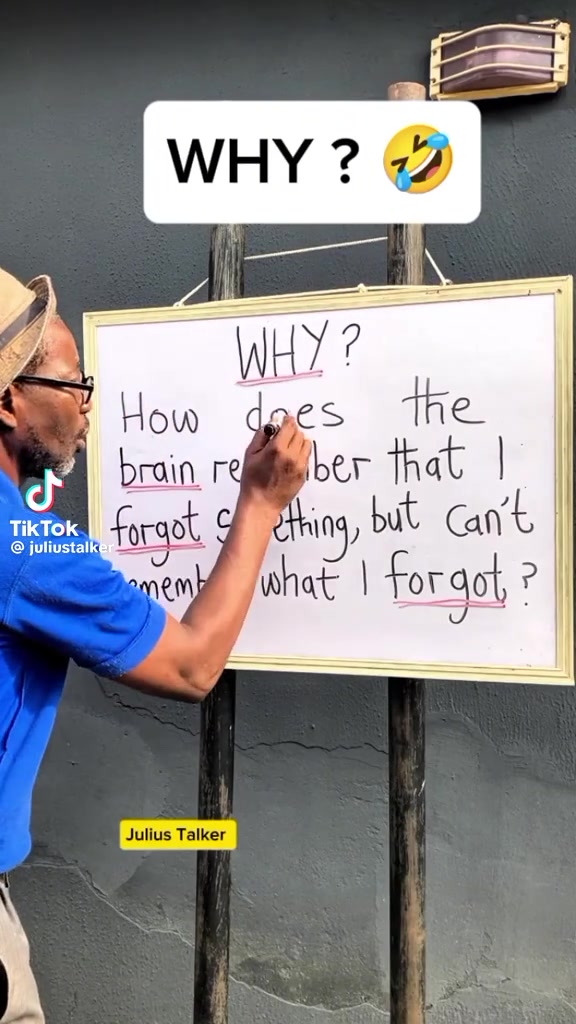 WHY ? 🤣
WHY?
How does the
brain re ber that I
forgot s ething, but can't
ememb what I forgot?
TikTok
@ juliustalker
Julius Talker